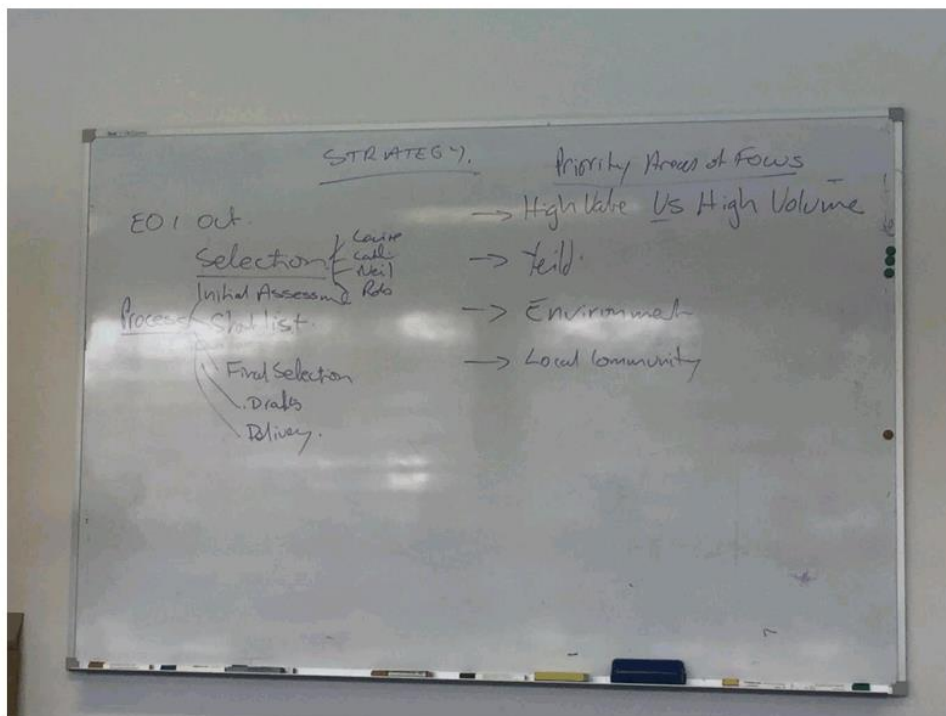 STRATEGY.
EOI Out.
Selection
Neil
Initial Assessm
Process
Shortlist.
Final Selection
Drafts
Delivery.
Priority Areas of Focus
→ High Value Vs High Volume
→ Yeild.
→ Environment
→ Local Community